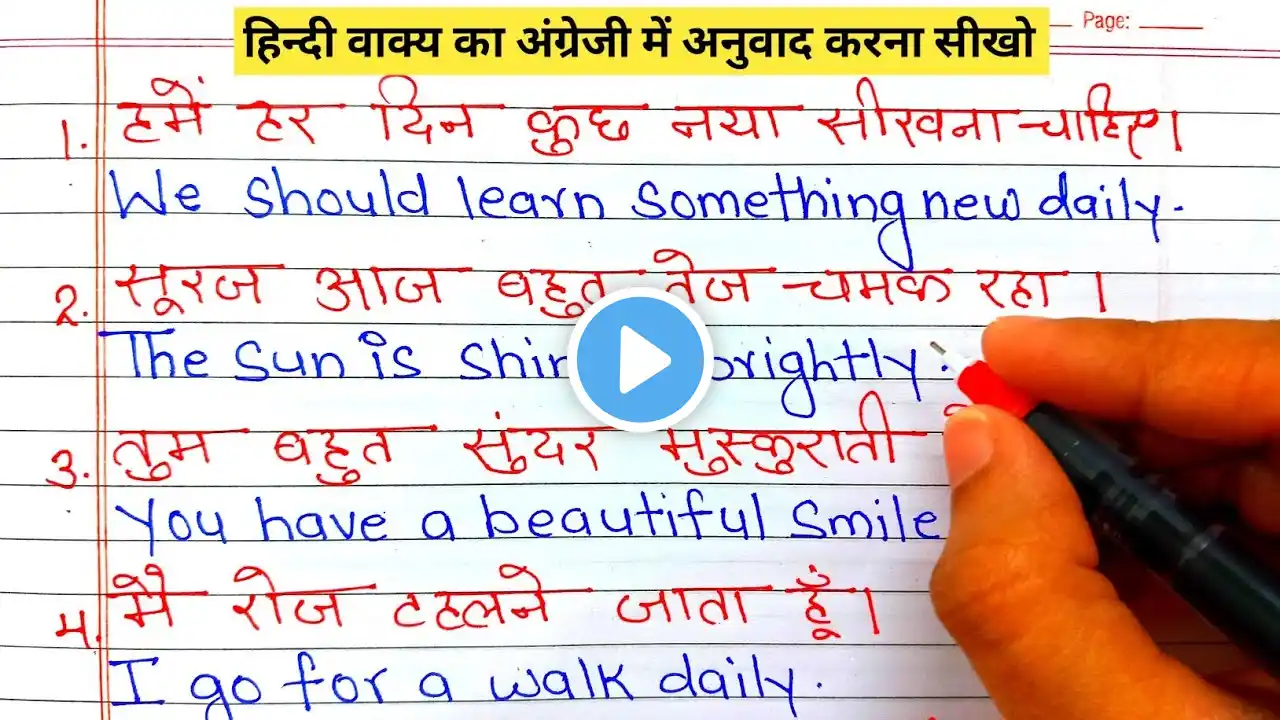 Page:
हिन्दी वाक्य का अंग्रेजी में अनुवाद करना सीखो
1. हमें हर दिन कुछ नया सीखना चाहिए।
We should learn something new daily.
2. सूरज आज बहुत तेज चमक रहा ।
The sun is shin brightly.
3. तुम बहुत सुंदर मुस्कुराती
You have a beautiful smile
4. मै रोज टहलने जाता हूँ।
I go for a walk daily.